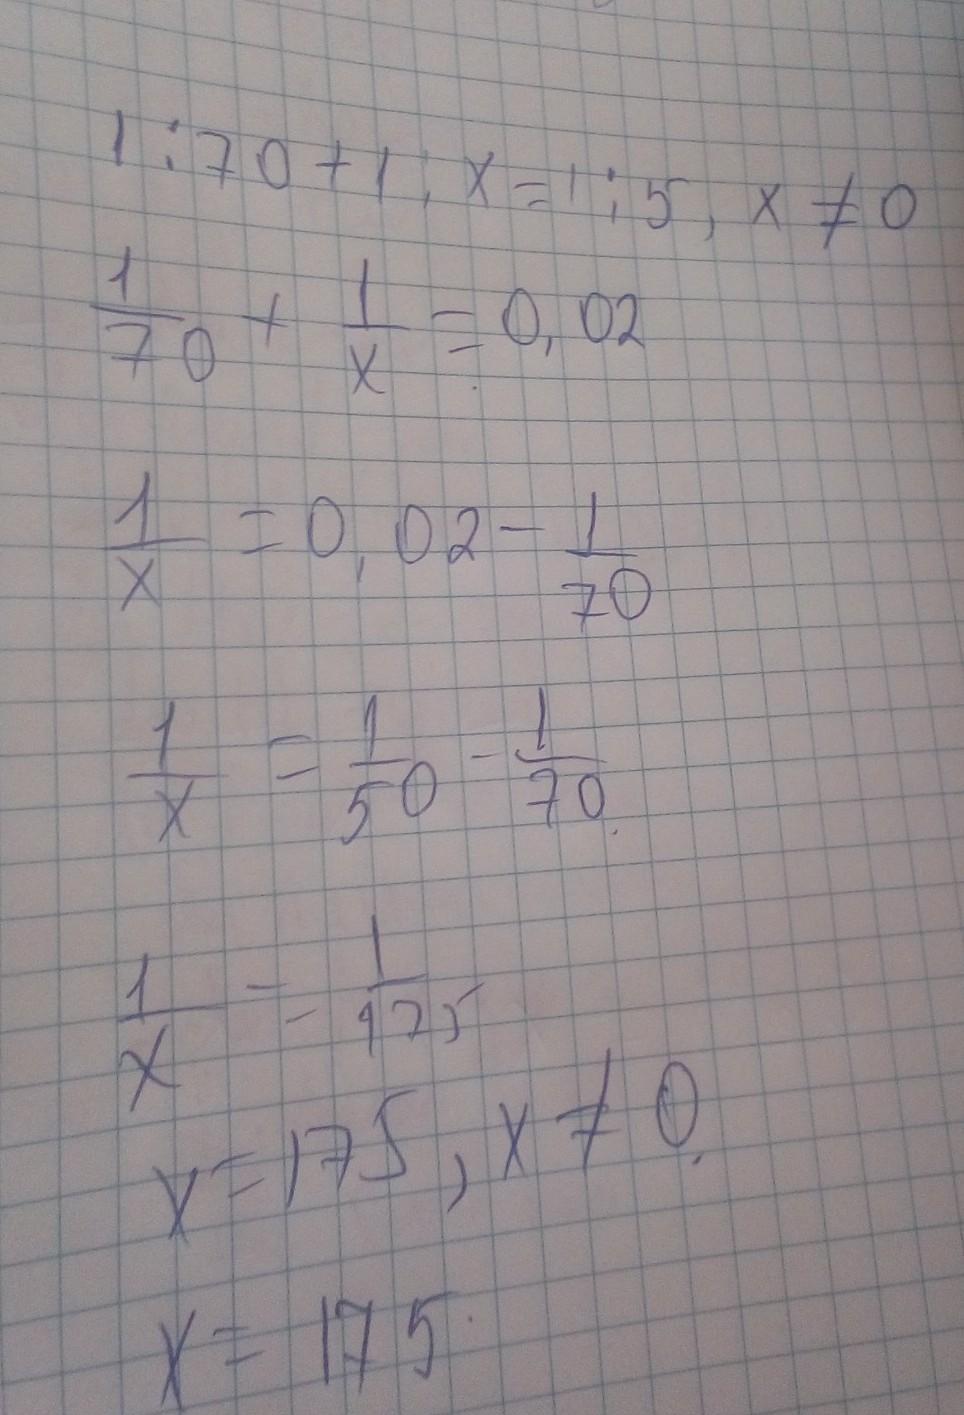 1:70+1:x=1:5, x≠0
1/70 + 1/x = 0,02
1/x = 0,02 - 1/70
1/x = 1/50 - 1/70
1/x = 1/175
x=175, x≠0
x=175